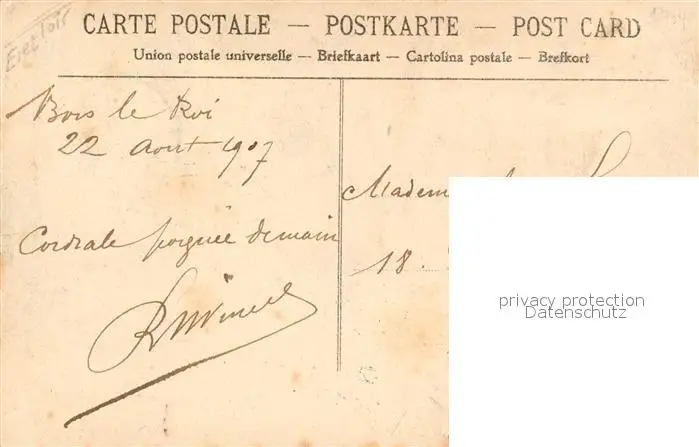 Eret loir
CARTE POSTALE — POSTKARTE — POST CARD
Union postale universelle — Briefkaart — Cartolina postale — Brefkort
Bois le Roi
22 Aout 1907
Cordiale poignée demain
Madem
18.
privacy protection
Datenschutz